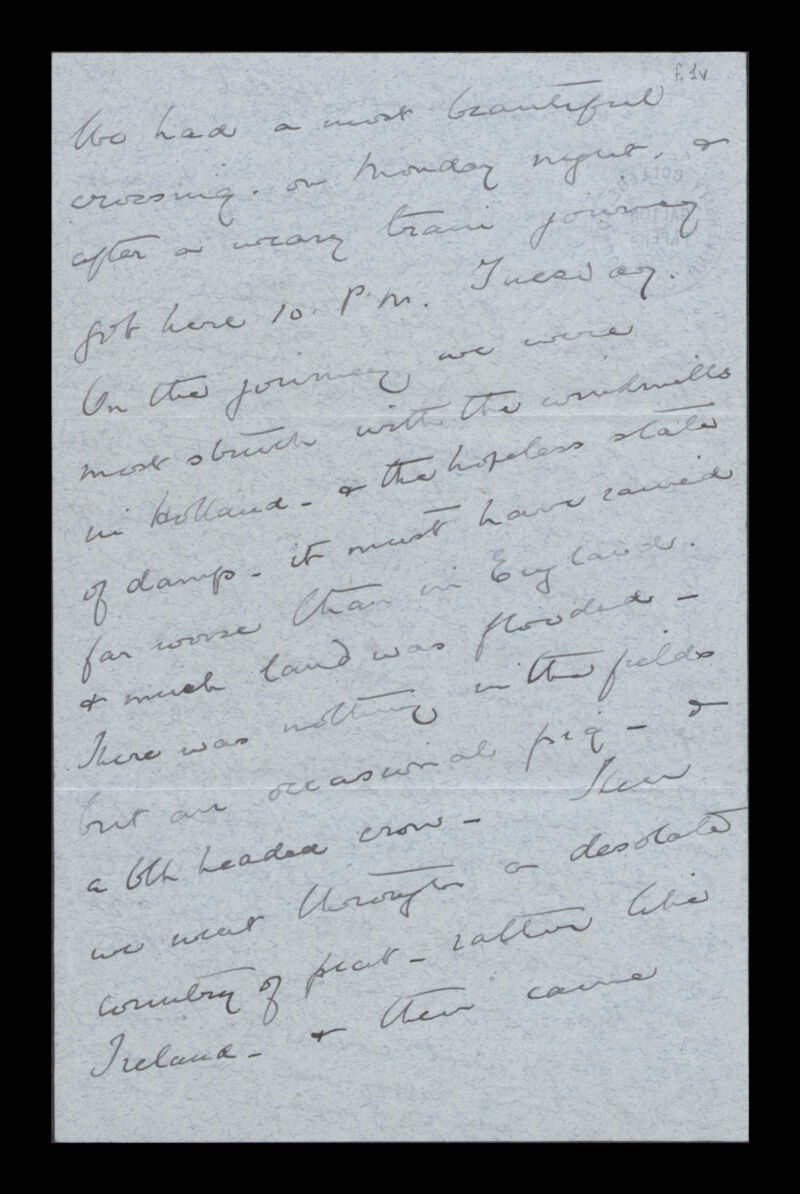 f. 1v
We had a most beautiful
crossing. on Monday night. &
after a weary train journey
got here 10. P.M. Tuesday.
On the journey we were
most struck with the windmills
in Holland - & the hopeless state
of damp - it must have rained
far worse than in England.
& much land was flooded -
There was nothing in the fields
but an occasional pig - &
a headed crow - Then
we went through a desolate
country of peat - rather like
Ireland - & then came